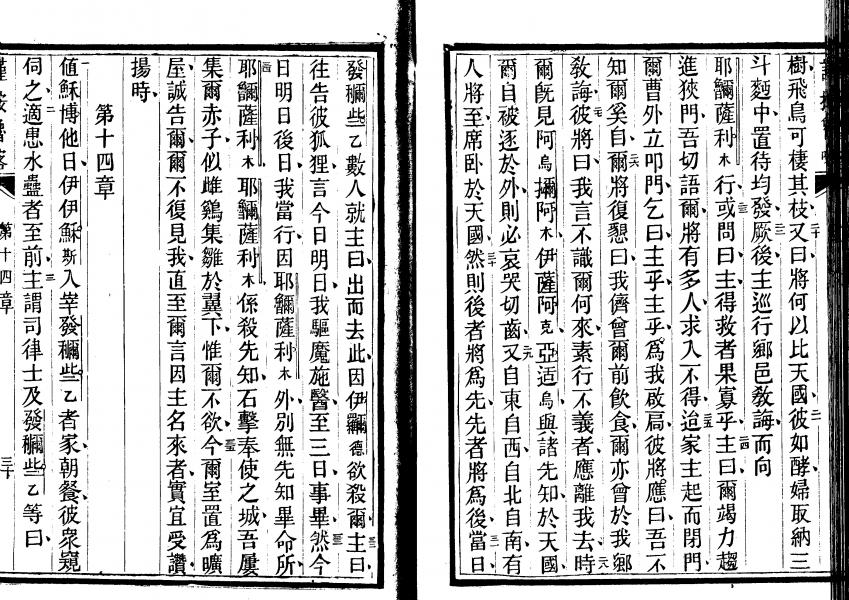 樹飛鳥可棲其枝又曰將何以比天國彼如酵婦取納三
斗麪中置待均發厥後主巡行鄉邑敎誨而向
耶𩆸薩利木行或問曰主得救者果寡乎主曰爾竭力趨
進狹門吾切語爾將有多人求入不得迨家主起而閉門
爾曹外立叩門乞曰主乎主乎爲我啟扃彼將應曰吾不
知爾奚自爾將復懇曰我儕曾爾前飮食爾亦曾於我鄉
敎誨彼將曰我言不識爾何來素行不義者應離我去時
爾旣見阿烏攟阿木伊薩阿克亞适烏與諸先知於天國
爾自被逐於外則必哀哭切齒又自東自西自北自南有
人將至席卧於天國然則後者將爲先先者將爲後當日
發穪些乙數人就主曰出而去此因伊𩆸德欲殺爾主曰
往告彼狐狸言今日明日我驅魔施醫至三日事畢然今
日明日後日我當行因耶𩆸薩利木外別無先知畢命所
耶𩆸薩利木耶𩆸薩利木係殺先知石擊奉使之城吾屢
集爾赤子似雌鷄集雛於翼下惟爾不欲今爾室置爲曠
屋誠告爾爾不復見我直至爾言因主名來者實宜受讚
揚時
第十四章
値穌博他日伊伊穌斯入宰發穪些乙者家朝餐彼衆窺
伺之適患水蠱者至前主謂司律士及發穪些乙等曰
第十四章
三十